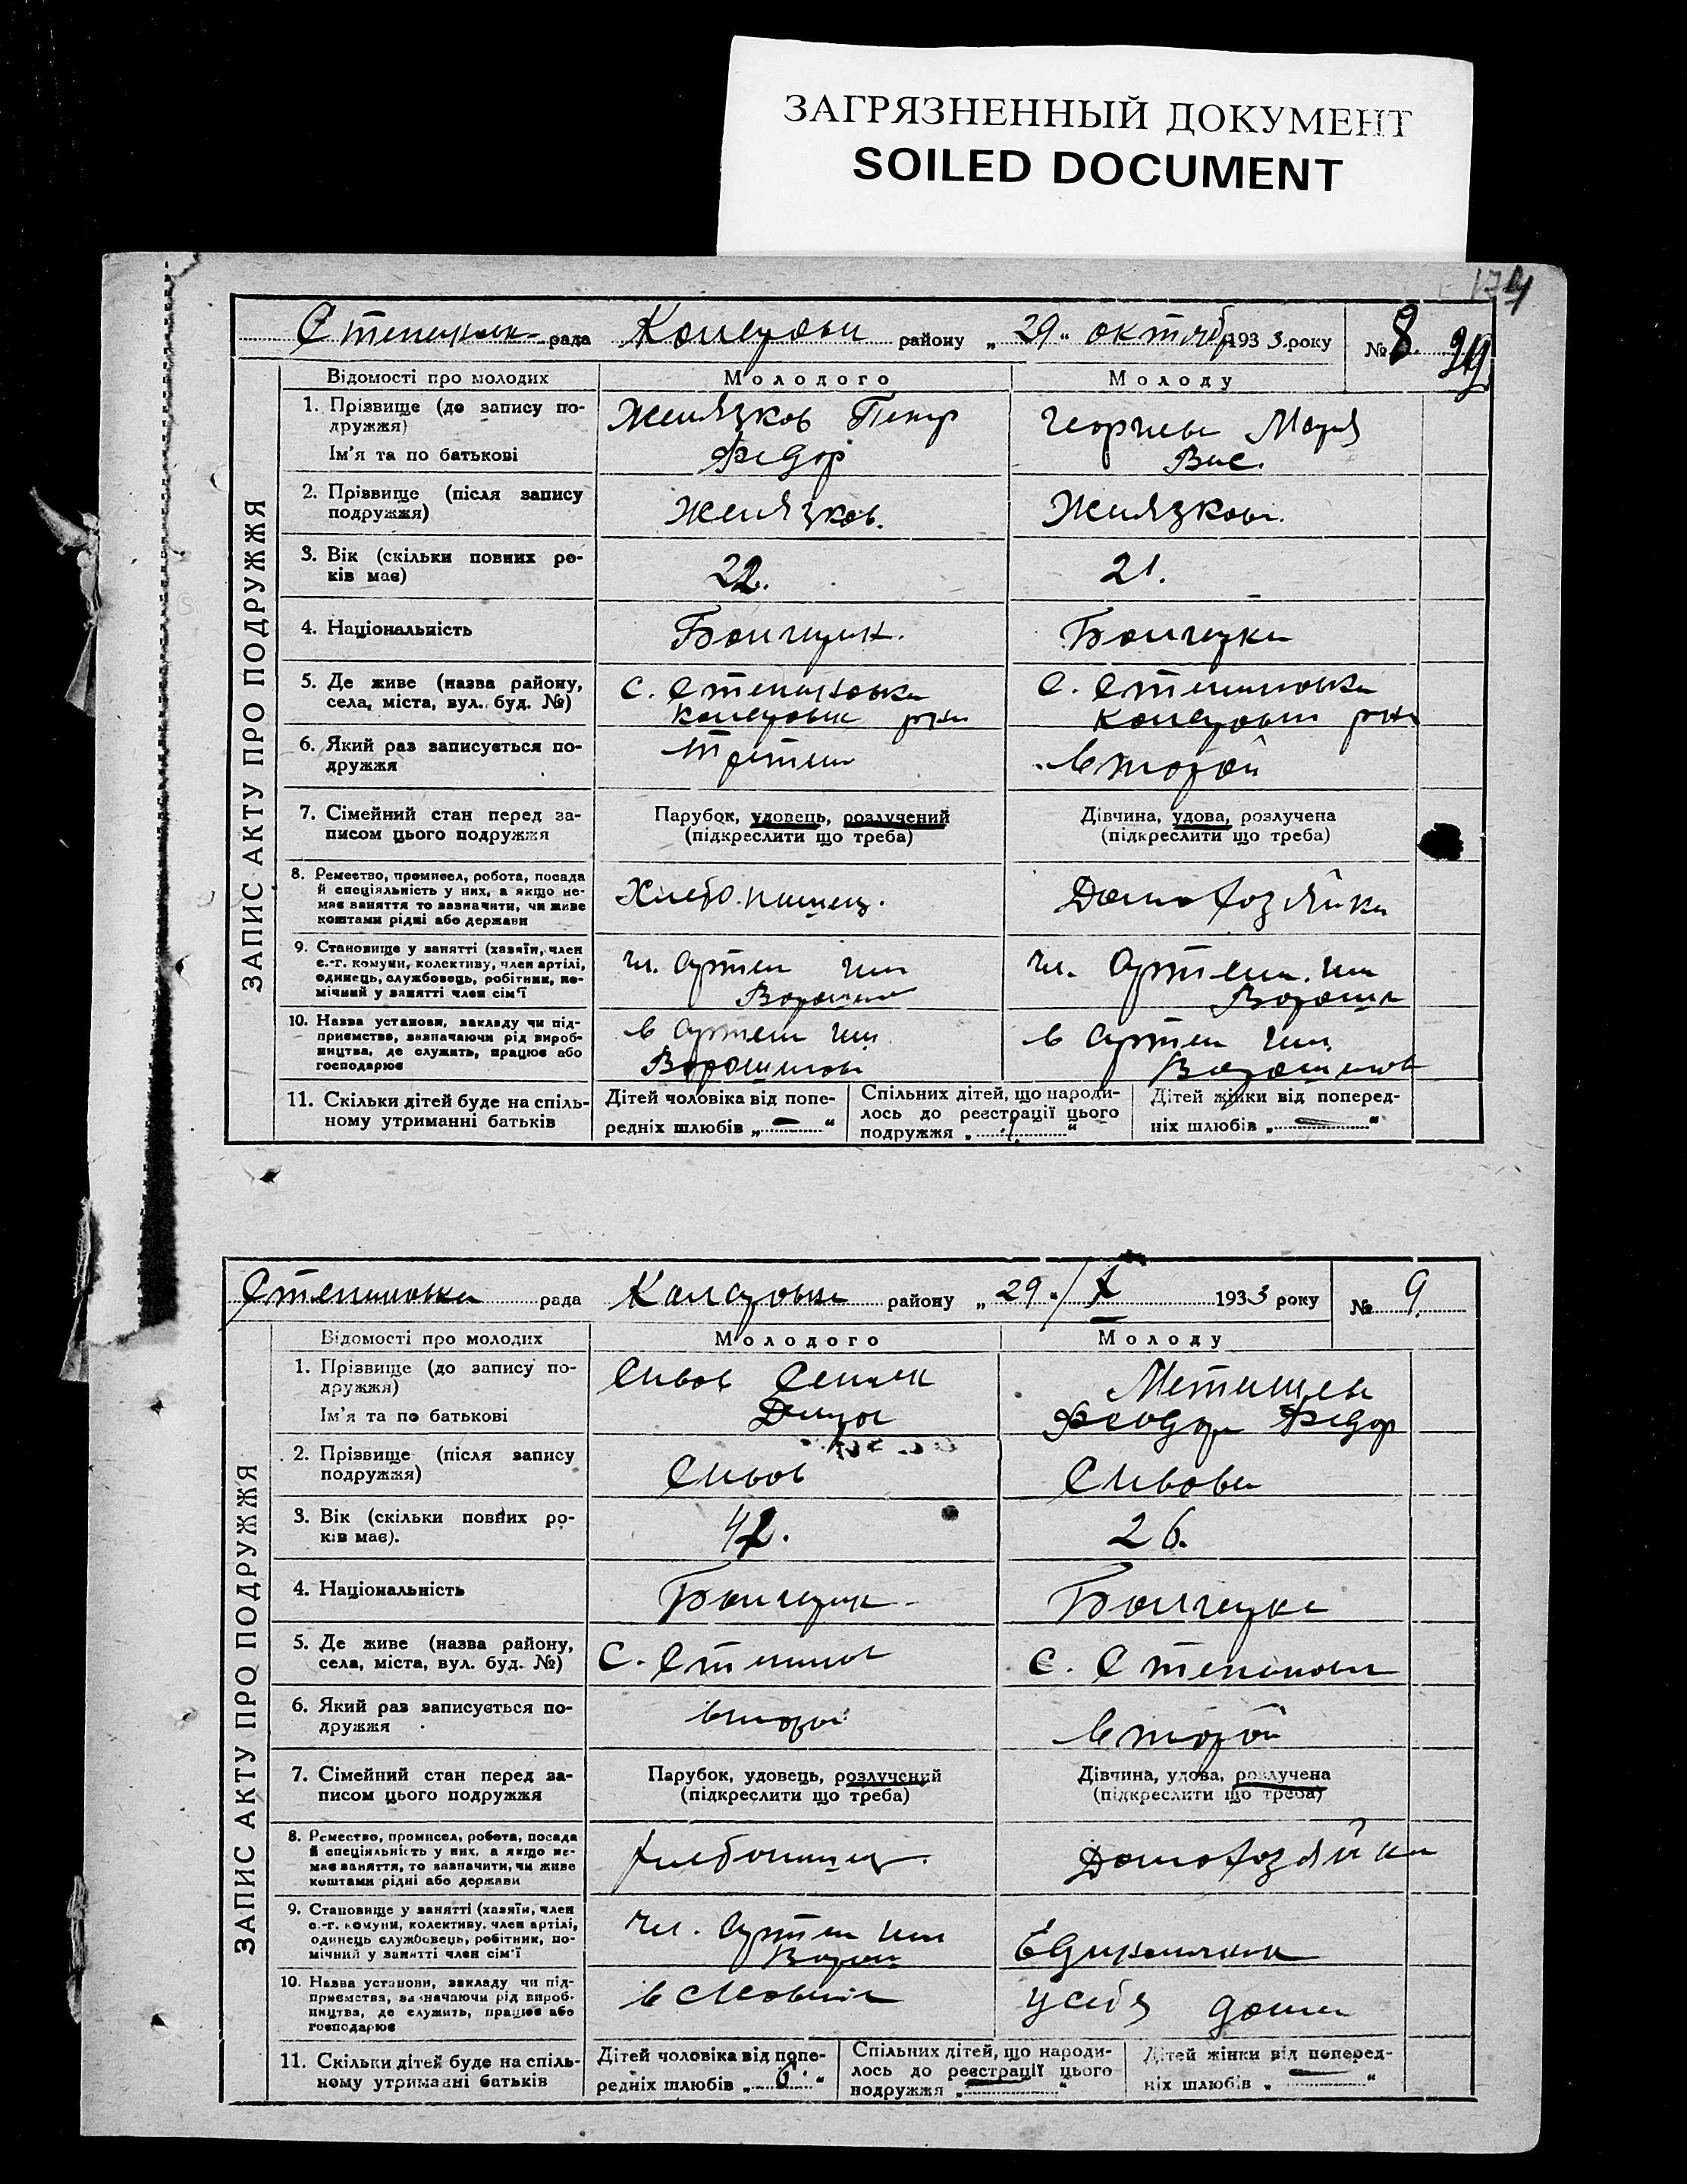 ЗАГРЯЗНЕННЫЙ ДОКУМЕНТ
SOILED DOCUMENT
174
рада району „29“ октябр 1933 року № 8.
Відомості про молодих Молодого Молоду
ЗАПИС АКТУ ПРО ПОДРУЖЖЯ
1. Прізвище (до запису по-
дружжя)
Ім'я та по батькові
Желязков Петр
Федор
Георгиева Мария
Вас.
2. Прізвище (після запису
подружжя)
Желязков.
Желязкова.
3. Вік (скільки повних ро-
ків має)
22.
21.
4. Національність
Болгарин.
Болгарка
5. Де живе (назва району,
села, міста, вул. буд. №)
с.
с.
6. Який раз записується по-
дружжя
третий
второй
7. Сімейний стан перед за-
писом цього подружжя
Парубок, удовець, розлучений
(підкреслити що треба)
Дівчина, удова, розлучена
(підкреслити що треба)
8. Ремество, промисел, робота, посада
й спеціяльність у них, а якщо не-
має заняття то зазначити, чи живе
коштами рідні або держави
Хлебопашец.
Домохозяйка
9. Становище у занятті (хазяїн, член
с.-г. комуни, колективу, член артілі,
одинець, службовець, робітник, по-
мічний у занятті член сім'ї
чл. артели им
Ворошил
чл. артели им
Ворошил
10. Назва установи, закладу чи під-
приємства, зазначаючи рід вироб-
ництва, де служить, працює або
господарює
в артели им
Ворошилова
в артели им
Ворошилов
11. Скільки дітей буде на спіль-
ному утриманні батьків
Дітей чоловіка від попе-
редніх шлюбів „—“
Спільних дітей, що народи-
лось до реєстрації цього
подружжя „1“
Дітей жінки від поперед-
ніх шлюбів „—“
рада району „29“/X 1933 року № 9.
Відомості про молодих Молодого Молоду
ЗАПИС АКТУ ПРО ПОДРУЖЖЯ
1. Прізвище (до запису по-
дружжя)
Ім'я та по батькові
Сивов
Федор
2. Прізвище (після запису
подружжя)
Сивов
Сивова
3. Вік (скільки повних ро-
ків має).
42.
26.
4. Національність
Болгарин
Болгарка
5. Де живе (назва району,
села, міста, вул. буд. №)
С.
с.
6. Який раз записується по-
дружжя
второй
второй
7. Сімейний стан перед за-
писом цього подружжя
Парубок, удовець, розлучений
(підкреслити що треба)
Дівчина, удова, розлучена
(підкреслити що треба)
8. Ремество, промисел, робота, посада
й спеціяльність у них, а якщо не-
має заняття, то зазначити, чи живе
коштами рідні або держави
хлебопашец.
Домохозяйка
9. Становище у занятті (хазяїн, член
с.-г. комуни, колективу, член артілі,
одинець службовець, робітник, по-
мічний у занятті член сім'ї
чл. артели им
Ворош
Единоличник
10. Назва установи, закладу чи під-
приємства, зазначаючи рід вироб-
ництва, де служить, працює або
господарює
у себя дома
11. Скільки дітей буде на спіль-
ному утриманні батьків
Дітей чоловіка від попе-
редніх шлюбів „6“
Спільних дітей, що народи-
лось до реєстрації цього
подружжя „—“
Дітей жінки від поперед-
ніх шлюбів „—“